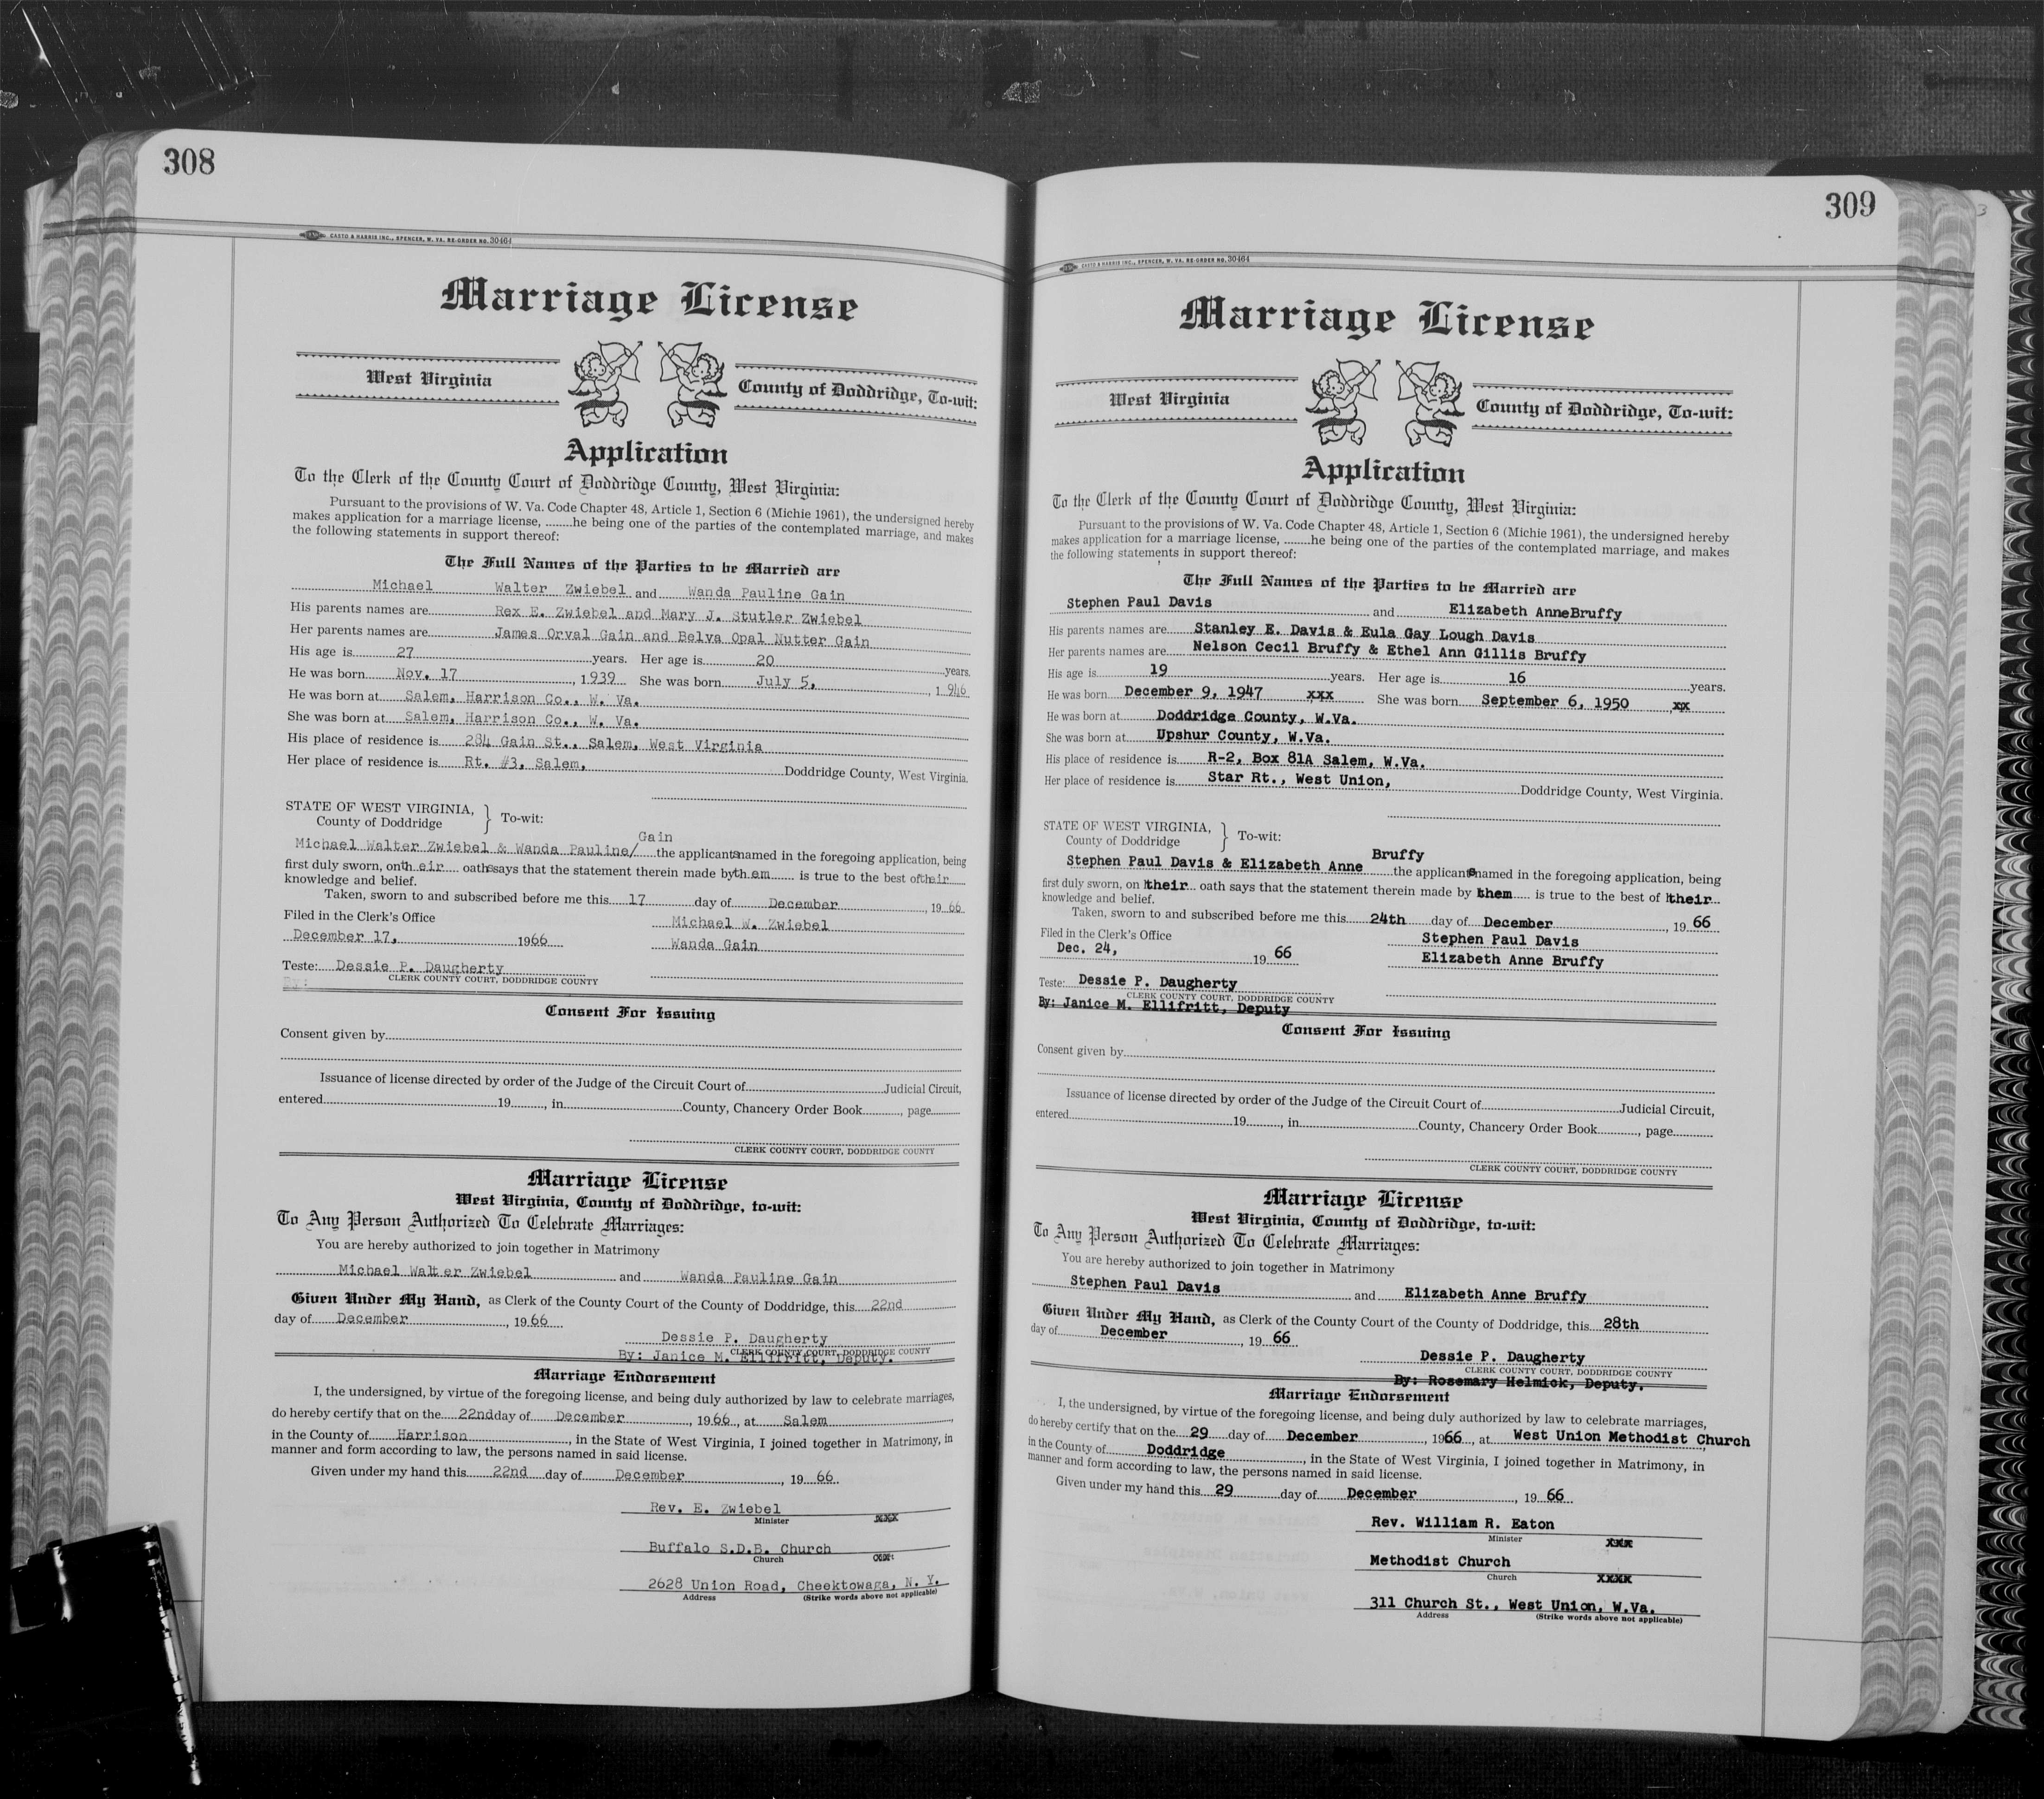 308
CASTO & HARRIS INC., SPENCER, W. VA. RE-ORDER NO. 30464
Marriage License
West Virginia
County of Doddridge, To-wit:
Application
To the Clerk of the County Court of Doddridge County, West Virginia:
Pursuant to the provisions of W. Va. Code Chapter 48, Article 1, Section 6 (Michie 1961), the undersigned hereby
makes application for a marriage license, ........he being one of the parties of the contemplated marriage, and makes
the following statements in support thereof:
The Full Names of the Parties to be Married are
Michael Walter Zwiebel and Wanda Pauline Gain
His parents names are Rex E. Zwiebel and Mary J. Stutler Zwiebel
Her parents names are James Orval Gain and Belva Opal Nutter Gain
His age is 27 years. Her age is 20 years.
He was born Nov. 17, 1939 She was born July 5, 1946
He was born at Salem, Harrison Co., W. Va.
She was born at Salem, Harrison Co., W. Va.
His place of residence is 284 Gain St., Salem, West Virginia
Her place of residence is Rt. #3, Salem, Doddridge County, West Virginia.
STATE OF WEST VIRGINIA,
County of Doddridge } To-wit:
Gain
Michael Walter Zwiebel & Wanda Pauline/ the applicants named in the foregoing application, being
first duly sworn, on th eir oaths says that the statement therein made by th em is true to the best of their
knowledge and belief.
Taken, sworn to and subscribed before me this 17 day of December, 19 66
Filed in the Clerk's Office Michael W. Zwiebel
December 17, 1966 Wanda Gain
Teste: Dessie P. Daugherty
By: CLERK COUNTY COURT, DODDRIDGE COUNTY
Consent For Issuing
Consent given by
Issuance of license directed by order of the Judge of the Circuit Court of Judicial Circuit,
entered 19, in County, Chancery Order Book, page
CLERK COUNTY COURT, DODDRIDGE COUNTY
Marriage License
West Virginia, County of Doddridge, to-wit:
To Any Person Authorized To Celebrate Marriages:
You are hereby authorized to join together in Matrimony
Michael Walter Zwiebel and Wanda Pauline Gain
Given Under My Hand, as Clerk of the County Court of the County of Doddridge, this 22nd
day of December, 19 66
Dessie P. Daugherty
CLERK COUNTY COURT, DODDRIDGE COUNTY
By: Janice M. Ellifritt, Deputy.
Marriage Endorsement
I, the undersigned, by virtue of the foregoing license, and being duly authorized by law to celebrate marriages,
do hereby certify that on the 22nd day of December, 19 66, at Salem
in the County of Harrison, in the State of West Virginia, I joined together in Matrimony, in
manner and form according to law, the persons named in said license.
Given under my hand this 22nd day of December, 19 66
Rev. E. Zwiebel
Minister xxx
Buffalo S.D.B. Church
Church
2628 Union Road, Cheektowaga, N. Y.
Address (Strike words above not applicable)
309
CASTO & HARRIS INC., SPENCER, W. VA. RE-ORDER NO. 30464
Marriage License
West Virginia
County of Doddridge, To-wit:
Application
To the Clerk of the County Court of Doddridge County, West Virginia:
Pursuant to the provisions of W. Va. Code Chapter 48, Article 1, Section 6 (Michie 1961), the undersigned hereby
makes application for a marriage license, ........he being one of the parties of the contemplated marriage, and makes
the following statements in support thereof:
The Full Names of the Parties to be Married are
Stephen Paul Davis and Elizabeth AnneBruffy
His parents names are Stanley E. Davis & Eula Gay Lough Davis
Her parents names are Nelson Cecil Bruffy & Ethel Ann Gillis Bruffy
His age is 19 years. Her age is 16 years.
He was born December 9, 1947 xxx She was born September 6, 1950 xx
He was born at Doddridge County, W.Va.
She was born at Upshur County, W.Va.
His place of residence is R-2, Box 81A Salem, W.Va.
Her place of residence is Star Rt., West Union, Doddridge County, West Virginia.
STATE OF WEST VIRGINIA,
County of Doddridge } To-wit:
Bruffy
Stephen Paul Davis & Elizabeth Anne the applicants named in the foregoing application, being
first duly sworn, on their oath says that the statement therein made by them is true to the best of their
knowledge and belief.
Taken, sworn to and subscribed before me this 24th day of December, 19 66
Filed in the Clerk's Office Stephen Paul Davis
Dec. 24, 19 66 Elizabeth Anne Bruffy
Teste: Dessie P. Daugherty
CLERK COUNTY COURT, DODDRIDGE COUNTY
By: Janice M. Ellifritt, Deputy
Consent For Issuing
Consent given by
Issuance of license directed by order of the Judge of the Circuit Court of Judicial Circuit,
entered 19, in County, Chancery Order Book, page
CLERK COUNTY COURT, DODDRIDGE COUNTY
Marriage License
West Virginia, County of Doddridge, to-wit:
To Any Person Authorized To Celebrate Marriages:
You are hereby authorized to join together in Matrimony
Stephen Paul Davis and Elizabeth Anne Bruffy
Given Under My Hand, as Clerk of the County Court of the County of Doddridge, this 28th
day of December, 19 66
Dessie P. Daugherty
CLERK COUNTY COURT, DODDRIDGE COUNTY
By: Rosemary Helmick, Deputy.
Marriage Endorsement
I, the undersigned, by virtue of the foregoing license, and being duly authorized by law to celebrate marriages,
do hereby certify that on the 29 day of December, 1966, at West Union Methodist Church
in the County of Doddridge, in the State of West Virginia, I joined together in Matrimony, in
manner and form according to law, the persons named in said license.
Given under my hand this 29 day of December, 19 66
Rev. William R. Eaton
Minister xxx
Methodist Church
Church xxxx
311 Church St., West Union, W.Va.
Address (Strike words above not applicable)